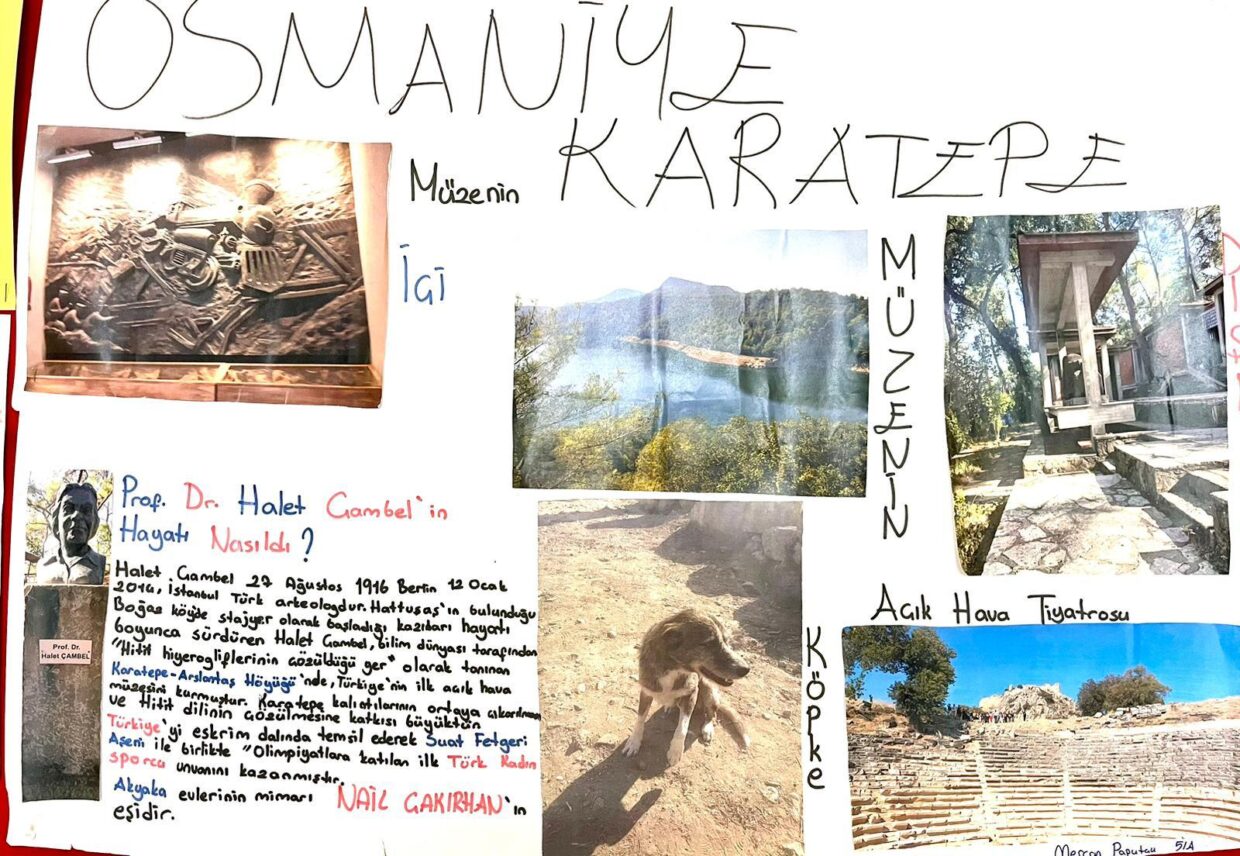 OSMANİYE
KARATEPE
Müzenin
İçi
MÜZENİN
Dışı
Prof. Dr. Halet Çambel'in
Hayatı Nasıldı?
Halet Çambel 27 Ağustos 1916 Berlin 12 Ocak
2014, İstanbul Türk arkeologdur. Hattuşaş'ın bulunduğu
Boğaz köyde stajyer olarak başladığı kazıları hayatı
boyunca sürdüren Halet Çambel, bilim dünyası tarafından
"Hitit hiyerogliflerinin çözüldüğü yer" olarak tanınan
Karatepe-Arslantaş Höyüğü'nde, Türkiye'nin ilk açık hava
müzesini kurmuştur. Karatepe kalıatılarının ortaya çıkarılması
ve Hitit dilinin çözülmesine katkısı büyüktür
Türkiye'yi eskrim dalında temsil ederek Suat Fetgeri
Aşeni ile birlikte "Olimpiyatlara katılan ilk Türk Kadın
sporcu unvanını kazanmıştır.
Akyaka evlerinin mimarı NAİL ÇAKIRHAN'ın
eşidir.
Prof. Dr.
Halet ÇAMBEL
KÖPKe
Açık Hava Tiyatrosu
5/A